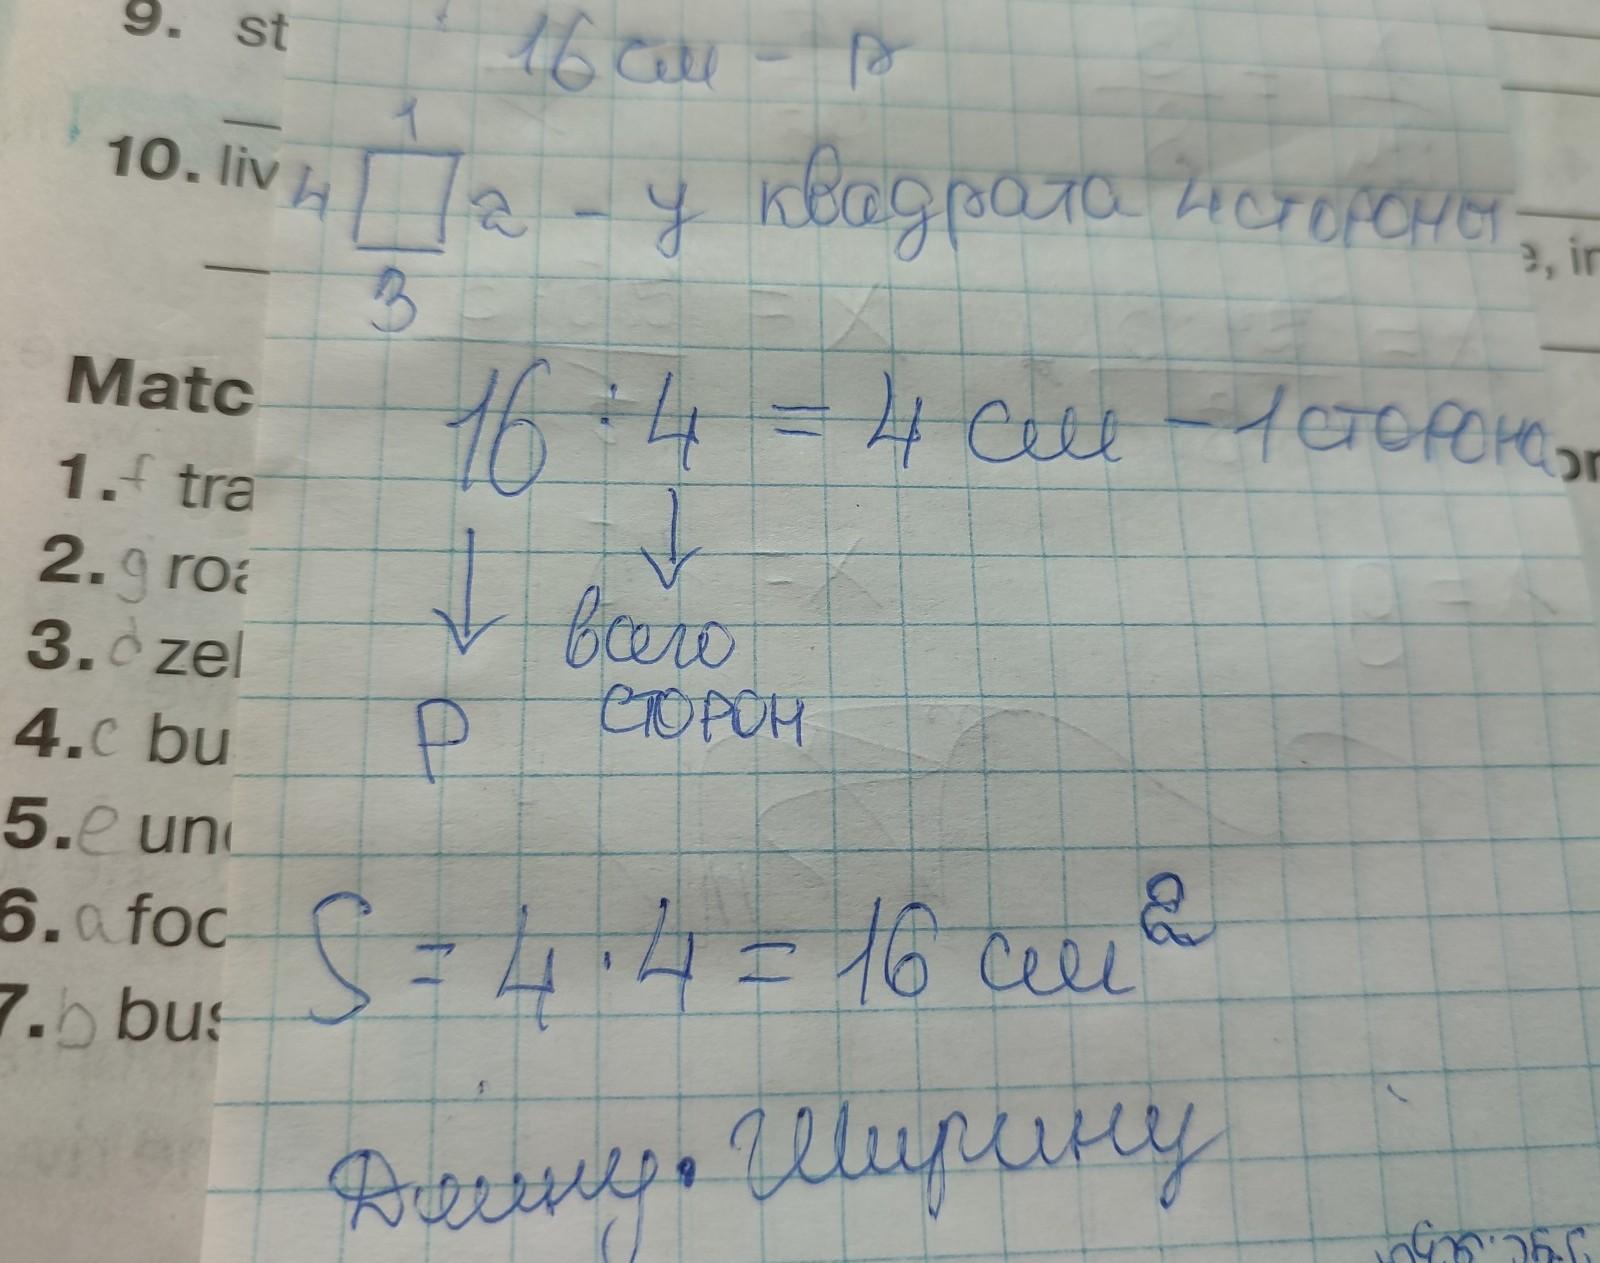 9. st
16 см - P
10. liv
1
4 2 - у квадрата 4 стороны
3
e, in
Matc
16 : 4 = 4 см - 1 сторона
1. f tra
2. g roa
всего
3. d zel
P сторон
4. c bu
5. e und
6. a foo
S = 4 · 4 = 16 см²
7. b bus
Длину · Ширину